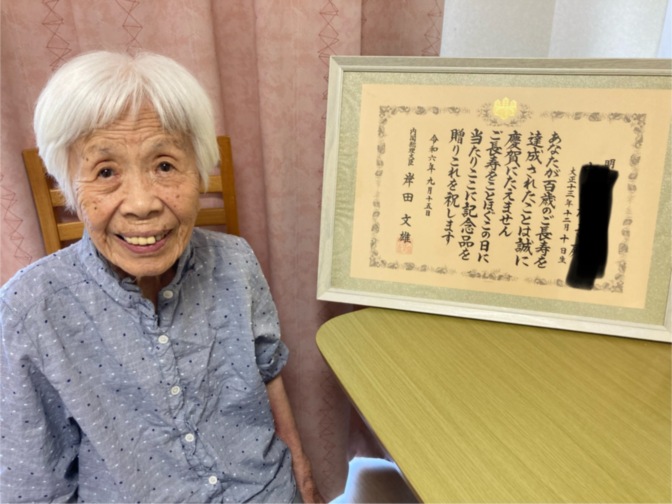 昭
大正十三年十二月十日生
あなたが百歳のご長寿を
達成されたことは誠に
慶賀にたえません
ご長寿をことほぐこの日に
当たりここに記念品を
贈りこれを祝します
令和六年九月十五日
内閣総理大臣 岸田文雄